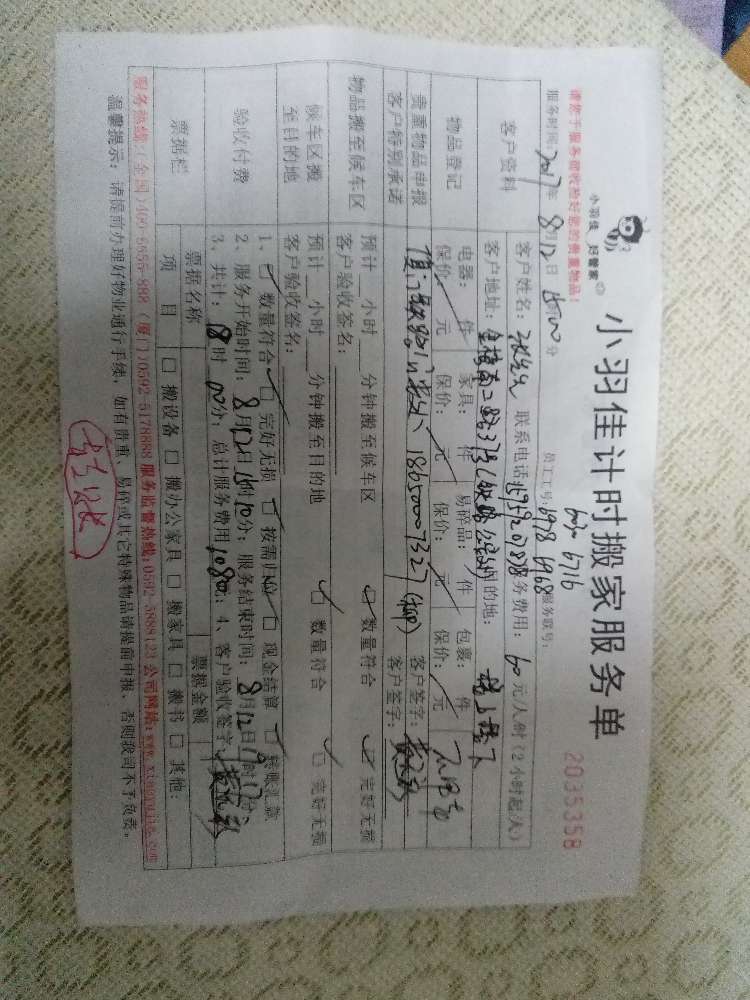 小羽佳 好管家
小羽佳计时搬家服务单
2035358
请您于服务前收验好您的贵重物品!
6716
服务时间: 2017年 8月12日 15时00分 员工工号: 6978 6968 服务联号:
客户资料
客户姓名: 联系电话: 服务费用: 60元/人/时 (2小时起/人)
客户地址: 目的地: 楼上搬下
物品登记
电器: 件 家具: 件 易碎品: 件 包裹: 件
保价: 元 保价: 元 保价: 元 保价: 元
贵重物品申报
客户特别承诺
客户签字:
18650007327
客户签字:
物品搬至候车区
预计 小时 分钟搬至候车区 数量符合 完好无损
客户验收签名:
候车区搬
至目的地
预计 小时 分钟搬至目的地 数量符合 完好无损
客户验收签名:
验收付费
1、 数量符合 完好无损 按需归位 现金结算 转账汇款
2、服务开始时间: 8月12日15时10分; 服务结束时间: 8月12日
3、共计: 18时00分; 总计服务费用1080元; 4、客户验收签字:
票据栏
票据名称 票据金额
项 目 □ 搬设备 □ 搬办公家具 □ 搬家具 □ 搬书 □ 其他:
服务热线: (全国)400-5555-888 (厦门)0592-5178888 服务监督热线: 0592-5888123 公司网站: www.xiaoyujia.com
温馨提示: 请提前办理好物业通行手续, 如有贵重、易碎或其它特殊物品请提前申报, 否则我司不予负责。